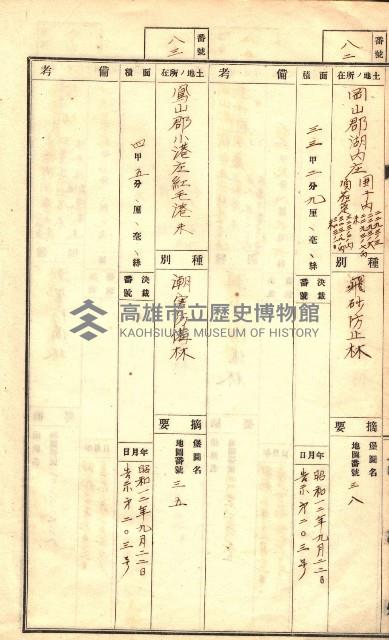 番號
八二
土地ノ所在
岡山郡湖内庄
種別
飛砂防止林
摘要
堡圖名
地圖番號
三八
面積
三三甲二分九厘 毫 絲
決裁番號
年月日
昭和一二年九月二二日
告示第二〇三号
備考
番號
八三
土地ノ所在
鳳山郡小港庄紅毛港
種別
潮害防備林
摘要
堡圖名
地圖番號
三五
面積
四甲五分 厘 毫 絲
決裁番號
年月日
昭和一二年九月二二日
告示第二〇三号
備考
高雄市立歷史博物館
KAOHSIUNG MUSEUM OF HISTORY